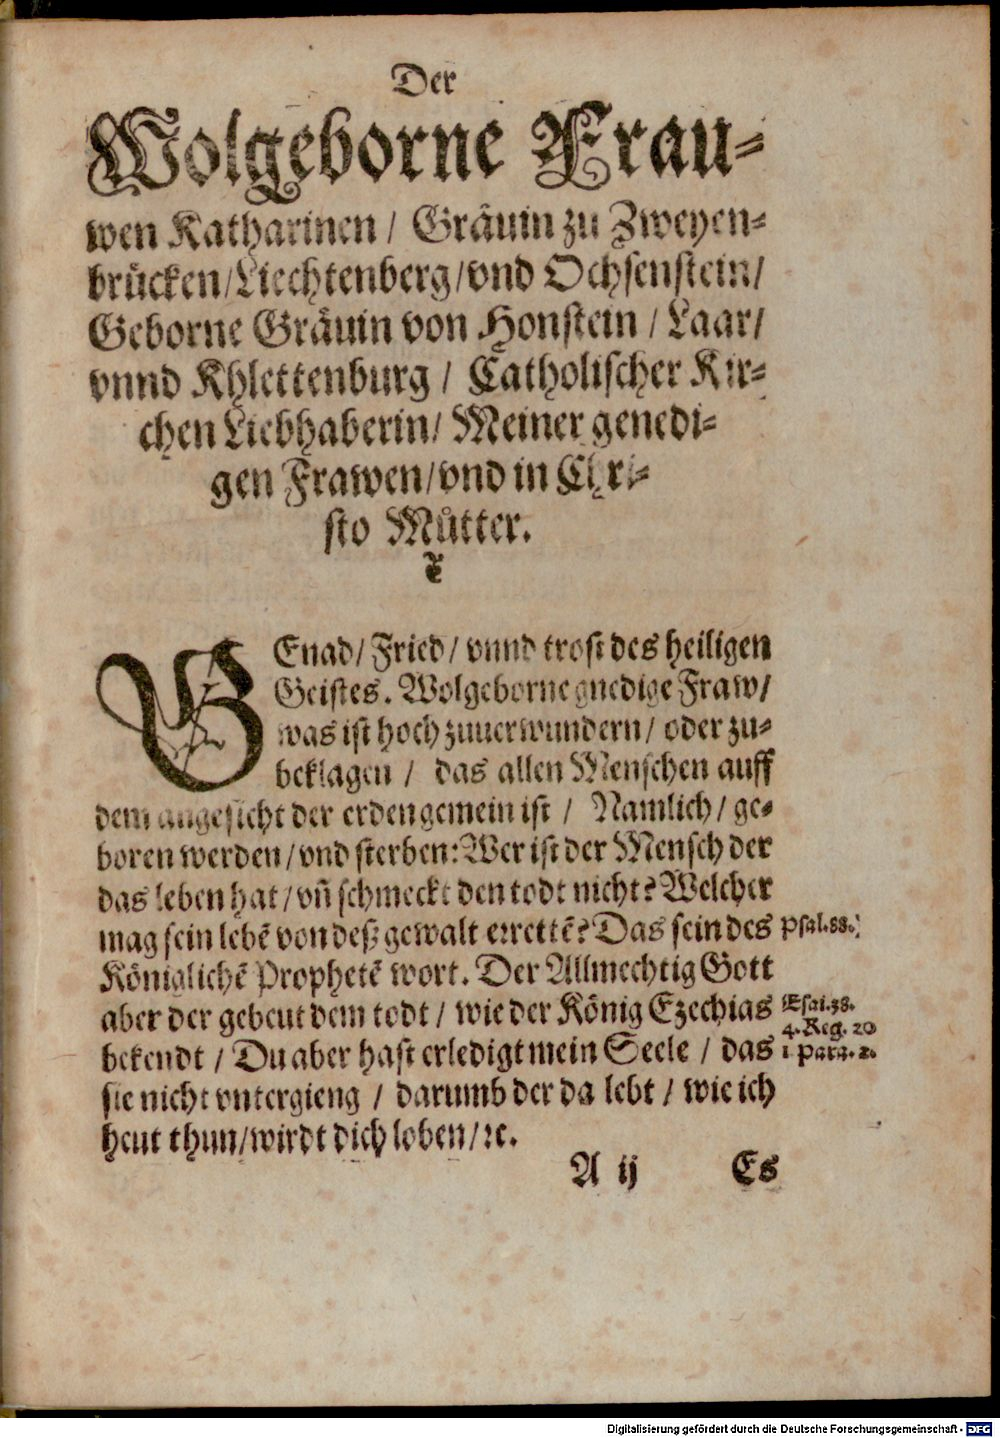 Der
Wolgeborne Frau-
wen Katharinen / Gräuin zu Zweyen-
brücken/Liechtenberg/vnd Ochsenstein/
Geborne Gräuin von Honstein / Laar/
vnnd Khlettenburg / Catholischer Kir-
chen Liebhaberin/ Meiner genedi-
gen Frawen/vnd in Chri-
sto Můtter.
GEnad/ Fried/ vnnd trost des heiligen
Geistes. Wolgeborne gnedige Fraw/
was ist hoch zuuerwundern/ oder zu-
beklagen / das allen Menschen auff
dem angesicht der erden gemein ist / Namlich/ ge-
boren werden/vnd sterben: Wer ist der Mensch der
das leben hat/vñ schmeckt den todt nicht? Welcher
mag sein lebē von deß gewalt errettē? Das sein des Psal.88.
Königlichē Prophetē wort. Der Allmechtig Gott
aber der gebeut dem todt / wie der König Ezechias Esai.38.
4. Reg. 20
bekendt / Du aber hast erledigt mein Seele / das 1 Para. 2.
sie nicht vntergieng / darumb der da lebt / wie ich
heut thun/wirdt dich loben/ꝛc.
A ij Es
Digitalisierung gefördert durch die Deutsche Forschungsgemeinschaft - DFG